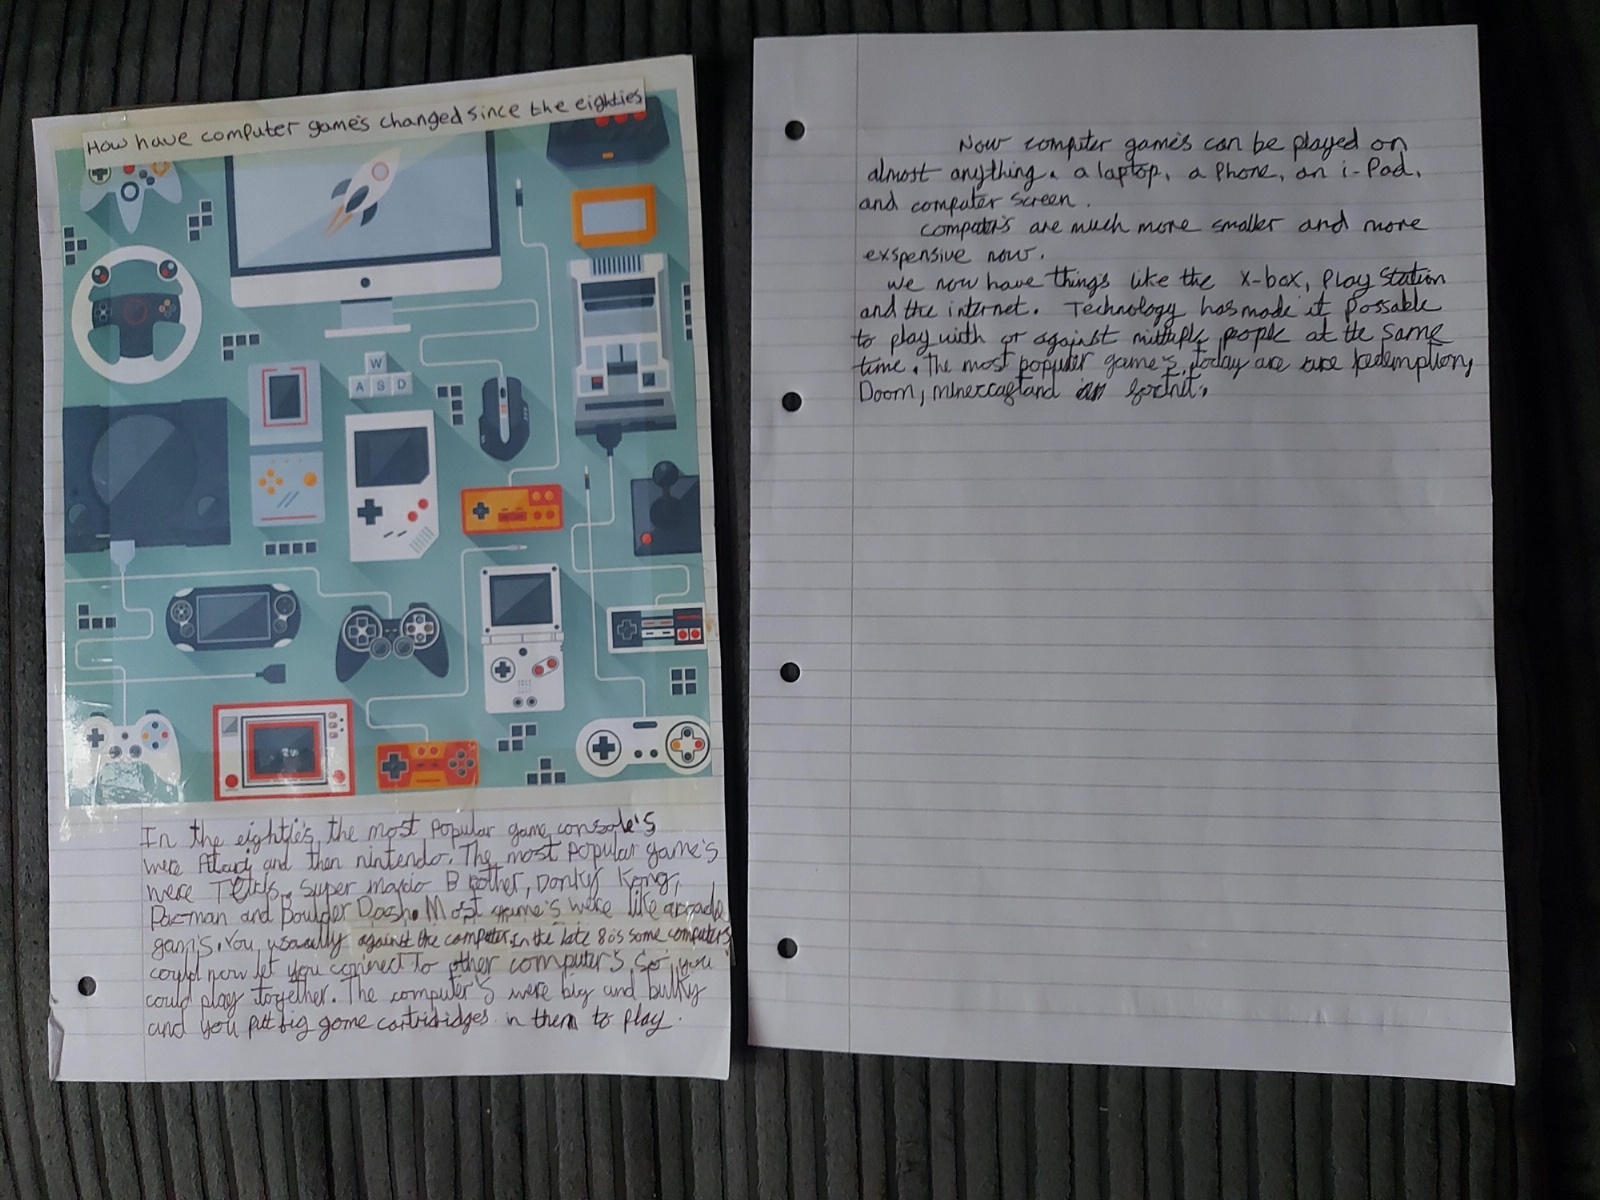 How have computer game's changed since the eighties
W
A S D
In the eightie's the most popular game console's
were Atari and then nintendo. The most popular game's
were Tetris, Super Mario Brother, Donky Kong,
Pacman and Boulder Dash. Most game's were like arcade
gam's. You usually against the computer. In the late 80s some computers
could now let you connect to other computer's so you
could play together. The computer's were big and bulky
and you put big game cartridges in them to play.
Now computer game's can be played on
almost anything. a laptop, a Phone, an i-Pad,
and computer screen.
computer's are much more smaller and more
exspensive now.
we now have thing's like the X-box, Play Station
and the internet. Technology has made it Possable
to play with or against multiple people at the same
time. The most popular game's today are redemption,
Doom, and fortnit.